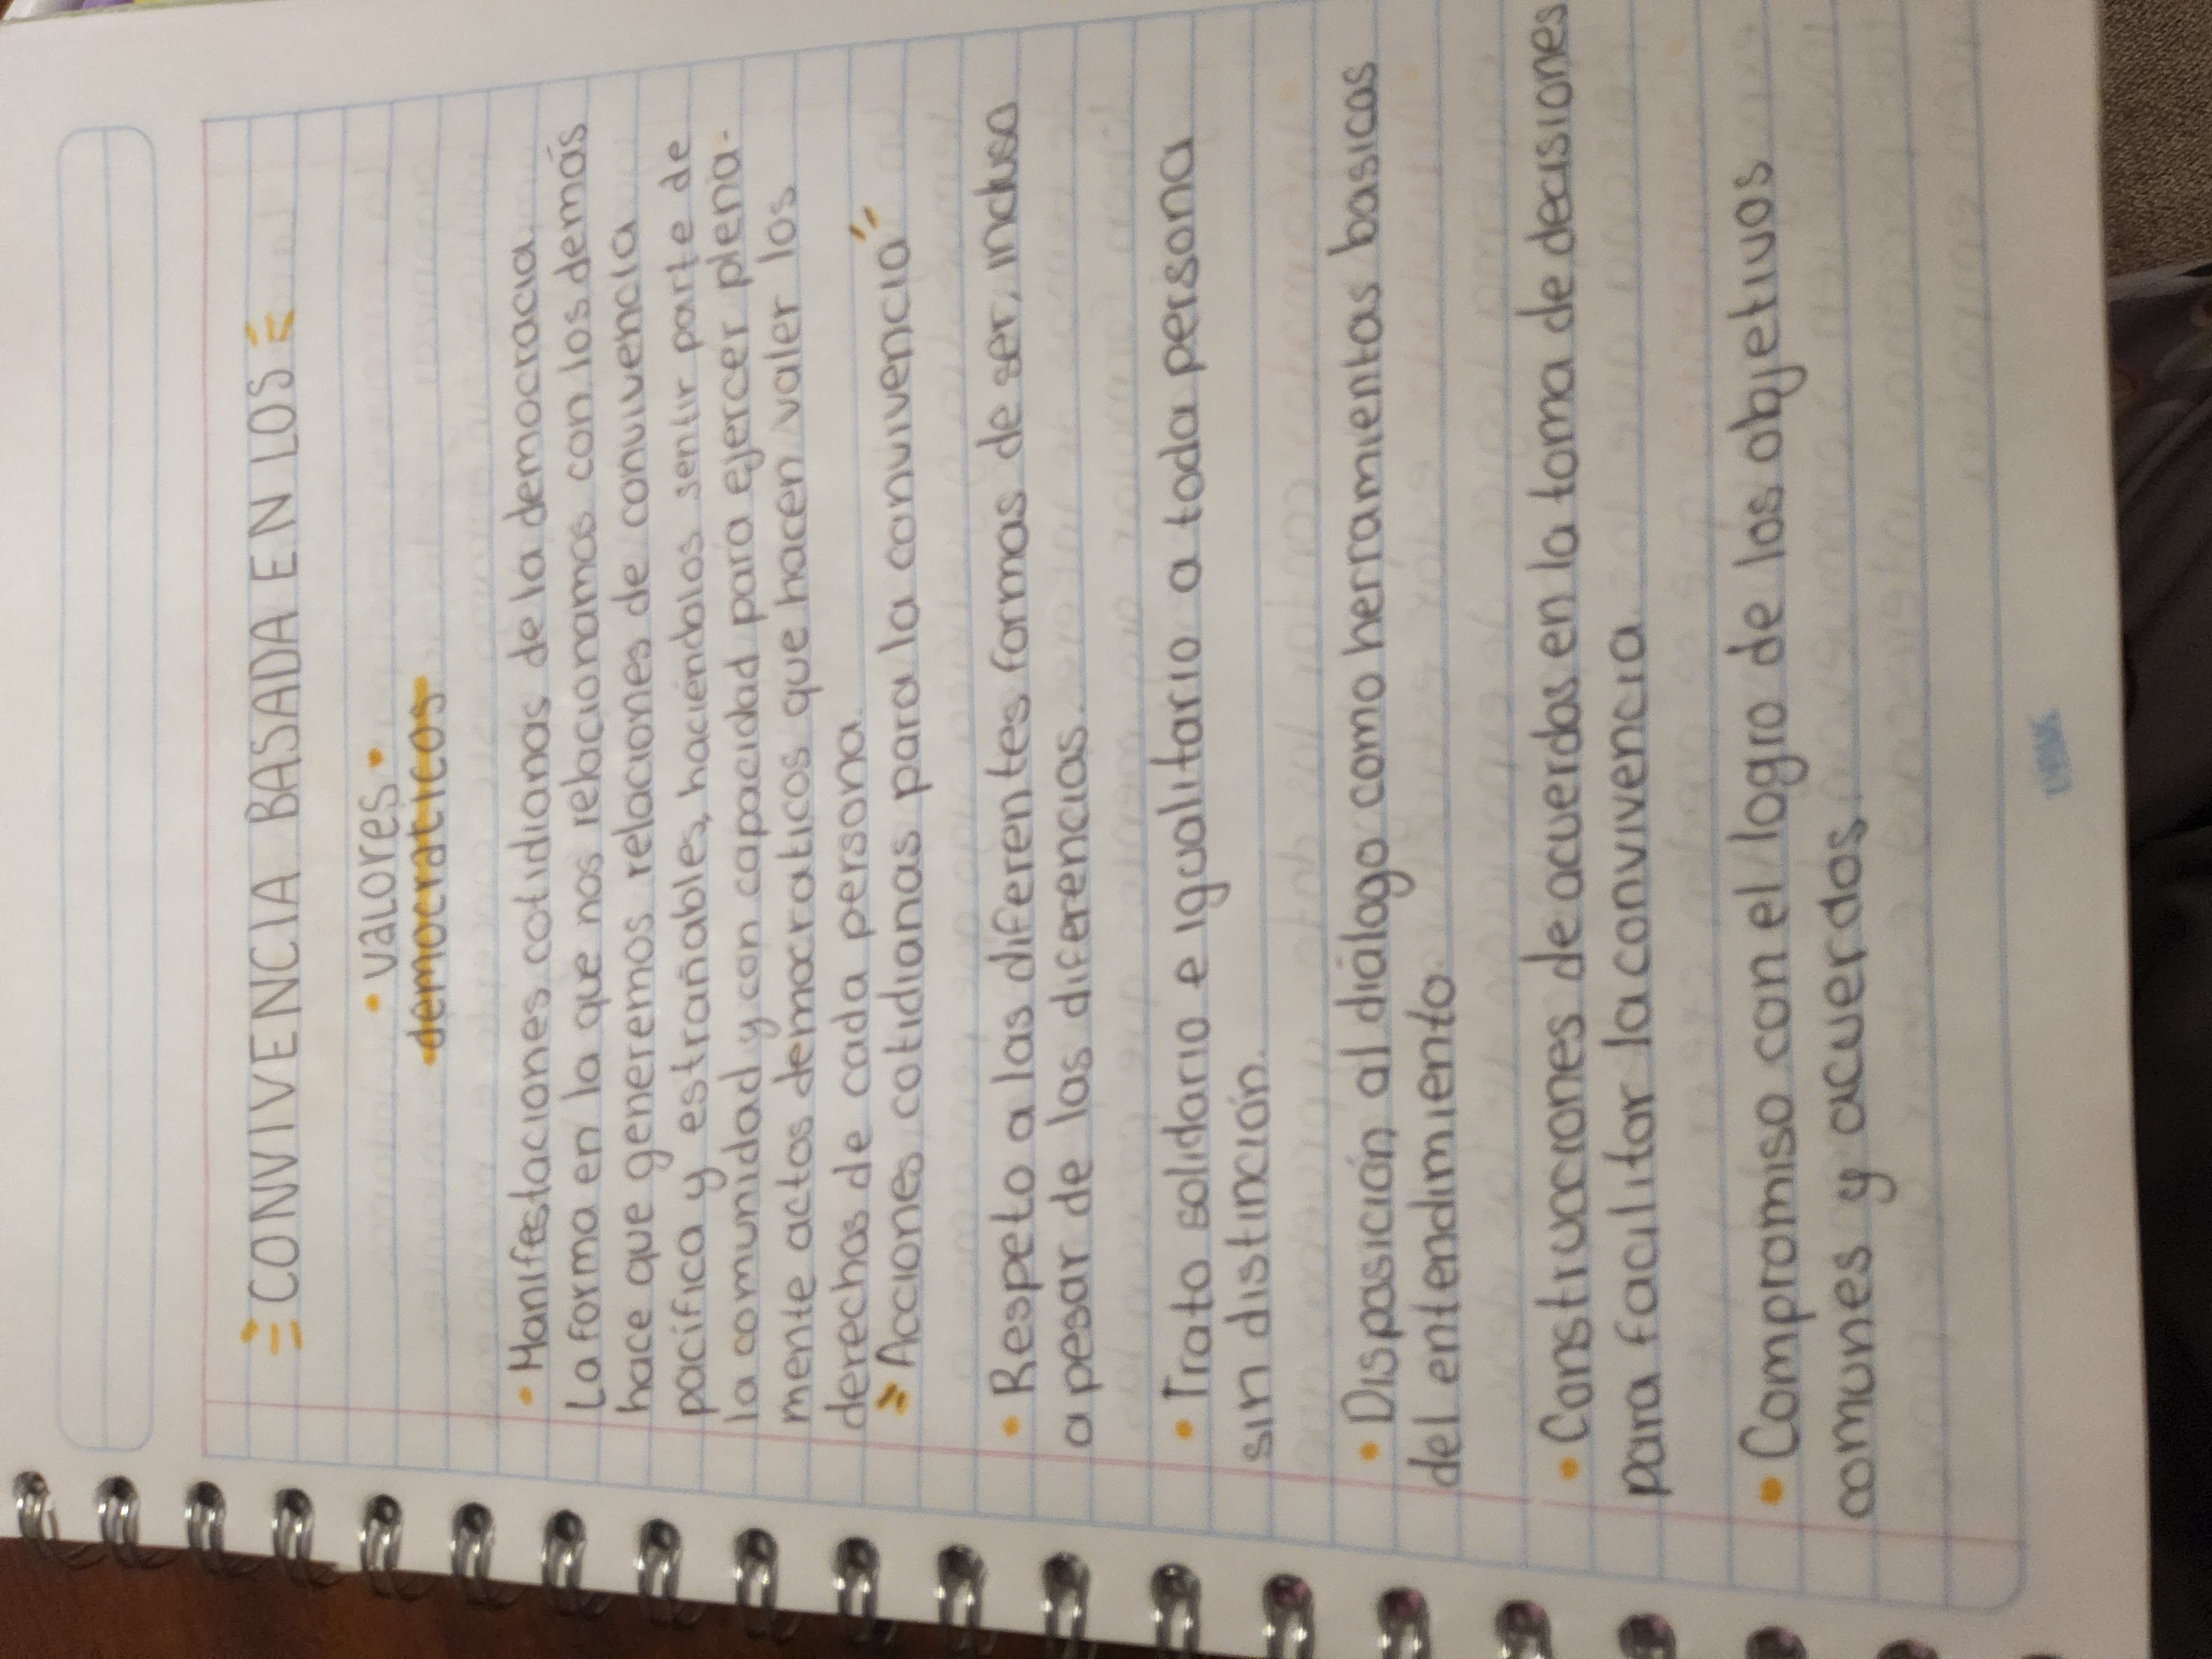 CONVIVENCIA BASADA EN LOS
• valores •
democraticos
• Manifestaciones cotidianas de la democracia.
La forma en la que nos relacionamos con los demás
hace que generemos relaciones de convivencia
pacífica y estrañables, haciéndolos sentir parte de
la comunidad y con capacidad para ejercer plena-
mente actos democraticos que hacen valer los
derechos de cada persona.
Acciones cotidianas para la convivencia
• Respeto a las diferentes formas de ser, incluso
a pesar de las diferencias.
• Trato solidario e igualitario a toda persona
sin distinción.
• Disposición al diálogo como herramientas basicas
del entendimiento.
• Construcciones de acuerdos en la toma de decisiones
para facilitar la convivencia.
• Compromiso con el logro de los objetivos
comunes y acuerdos.